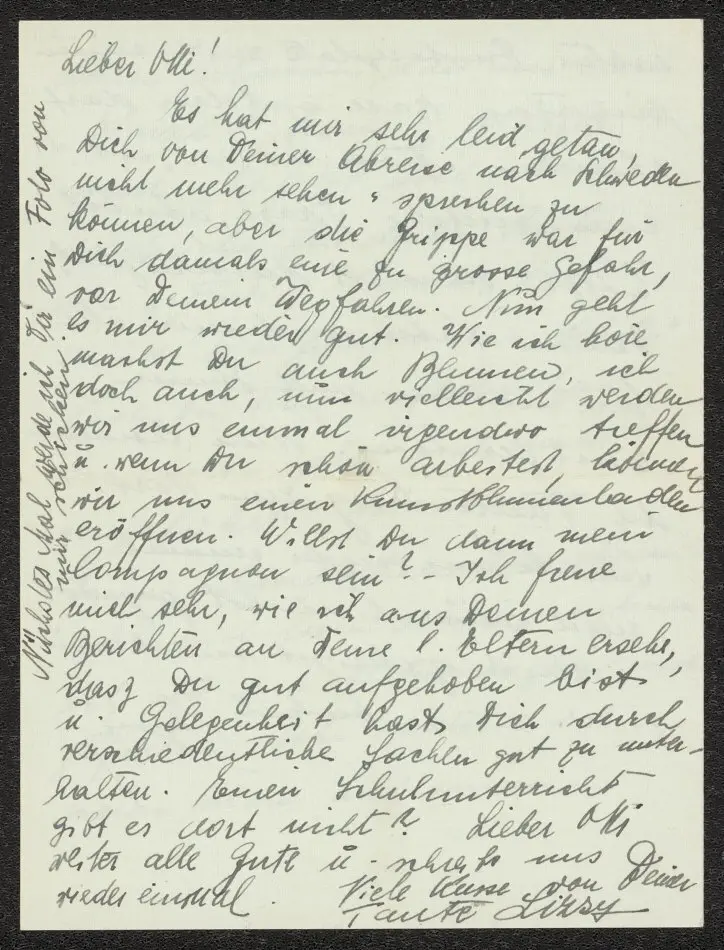 Lieber Otti!
Es hat mir sehr leid getan,
Dich vor Deiner Abreise nach Schweden
nicht mehr sehen u. sprechen zu
können, aber die Grippe war für
Dich damals eine zu grosse Gefahr,
vor Deinem Wegfahren. Nun geht
es mir wieder gut. Wie ich höre
machst Du auch Blumen, ich
doch auch, nun vielleicht werden
wir uns einmal irgendwo treffen
u. wenn Du schön arbeitest, können
wir uns einen Kunstblumenladen
eröffnen. Willst Du dann mein
Compagnon sein? - Ich freue
mich sehr, wie ich aus Deinen
Berichten an Deine l. Eltern ersehe,
dasz Du gut aufgehoben bist
u. Gelegenheit hast, Dich durch
verschiedentliche Sachen gut zu unter-
halten. Einen Schulunterricht
gibt es dort nicht? Lieber Otti
weiter alle Gute u. schreib uns
wieder einmal. Viele Küsse von Deiner
Tante Lizzy
Nächstes Mal werde ich Dir ein Foto von
mir schicken.